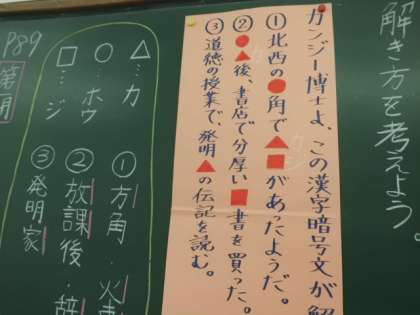 解き方を考えよう。
ガンジー博士よ、この漢字暗号文が解
①北西の●角で▲■があったようだ。
②●▲後、書店で分厚い■書を買った。
③道徳の授業で、発明▲の伝記を読む。
P89
第一
△…カ
○…ホウ
□…ジ
①方角・火事
②放課後・辞
③発明家